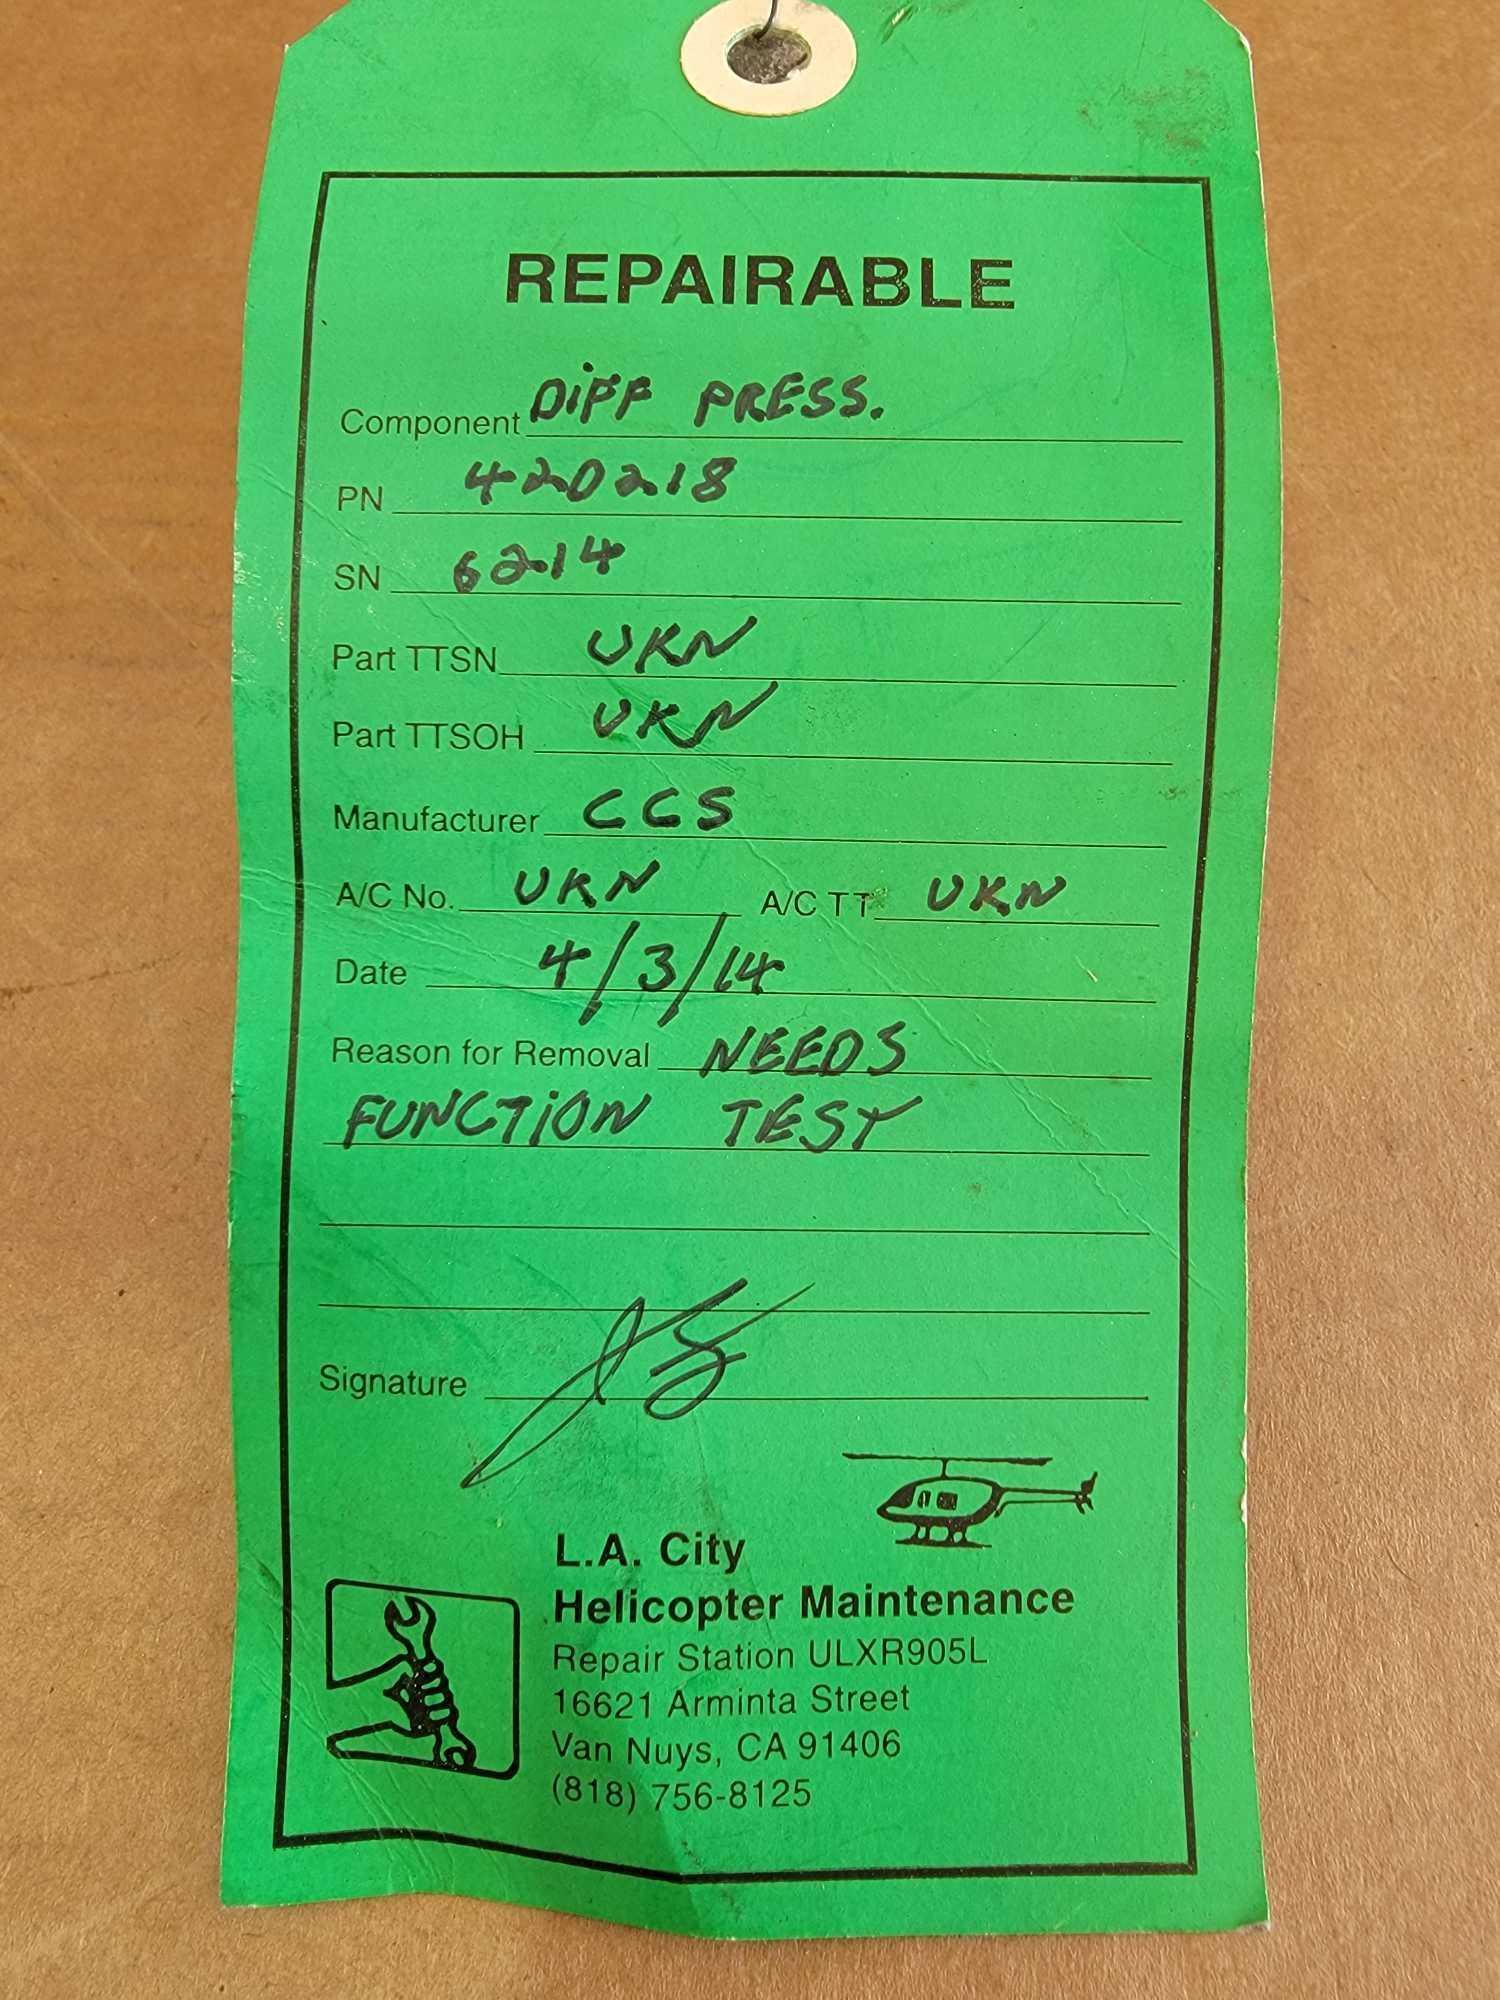 REPAIRABLE
Component DiFF PRESS.
PN 420218
SN 6214
Part TTSN UKN
Part TTSOH UKN
Manufacturer CCS
A/C No. UKN A/C TT UKN
Date 4/3/14
Reason for Removal NEEDS
FUNCTiON TEST
Signature
L.A. City
Helicopter Maintenance
Repair Station ULXR905L
16621 Arminta Street
Van Nuys, CA 91406
(818) 756-8125